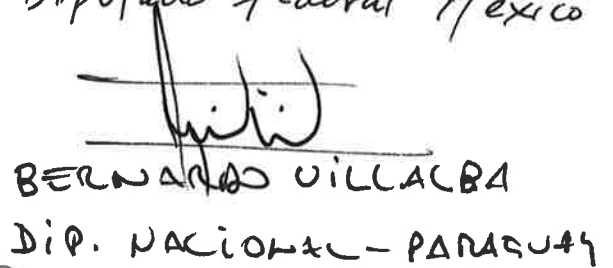 Diputado Federal México
BERNARDO VILLALBA
DIP. NACIONAL - PARAGUAY